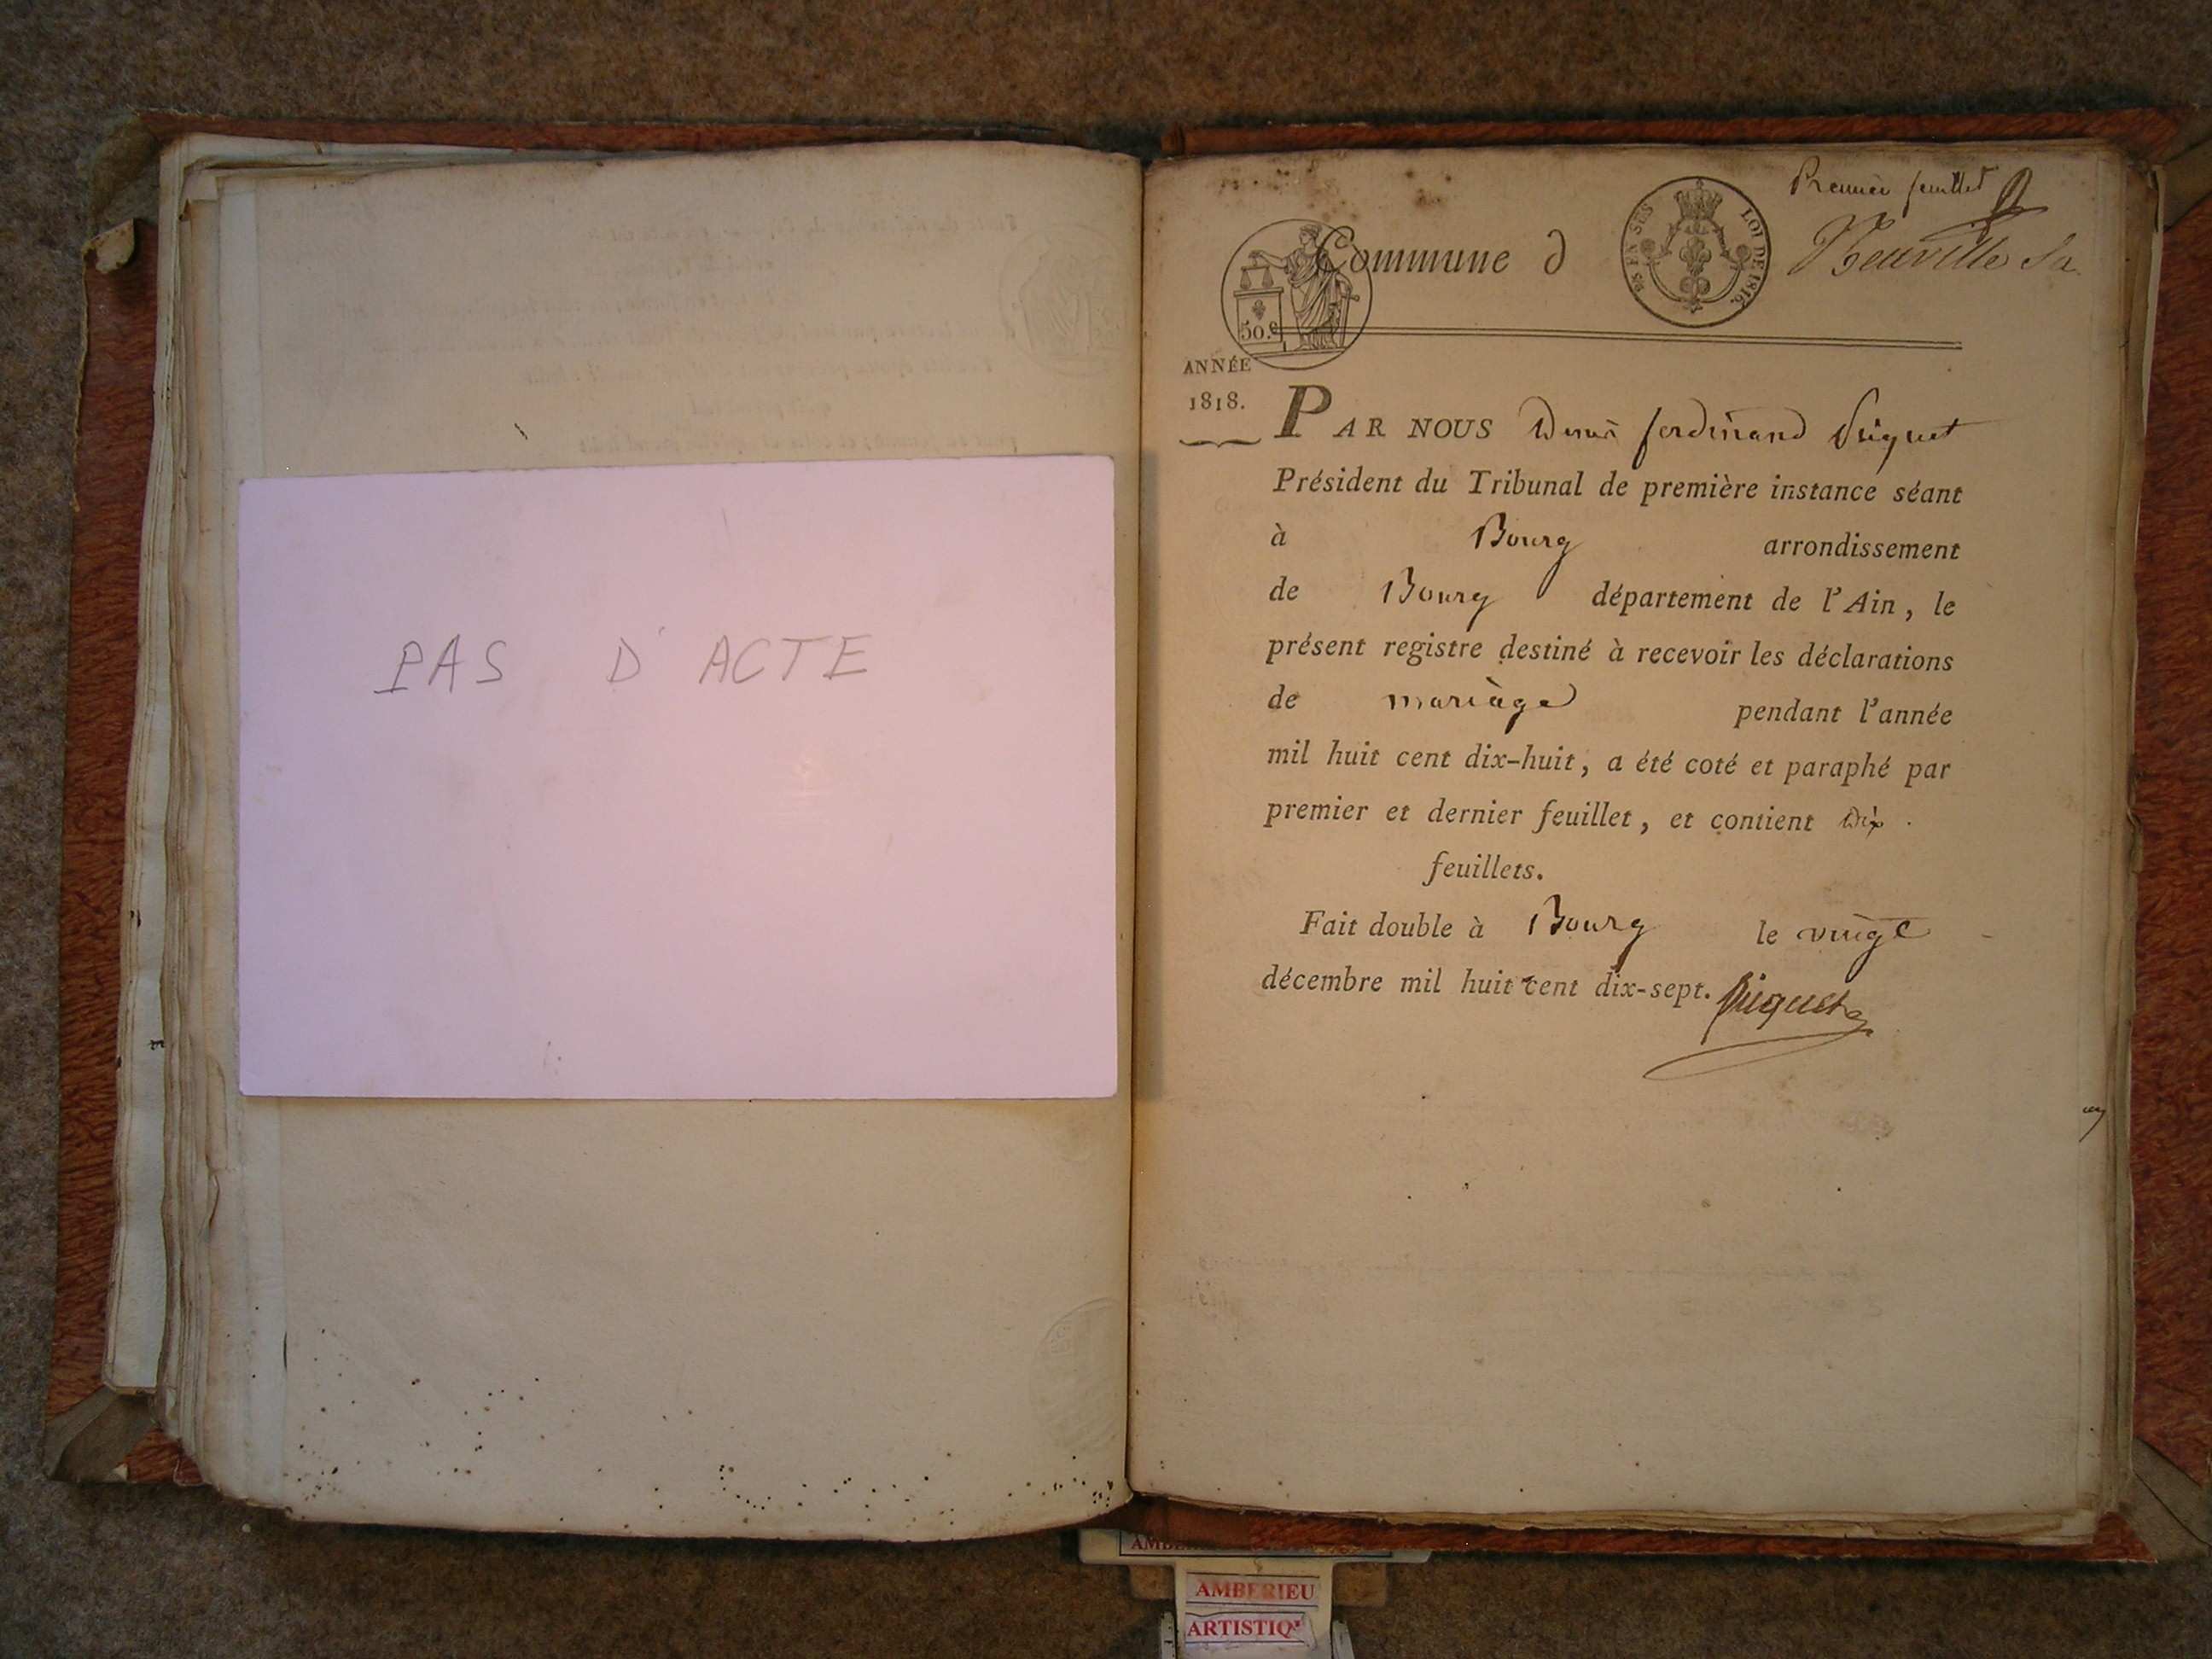 PAS D'ACTE
Premier feuillet
Commune d Neuville Su
50.c
EN SES
LOI DE 1816.
ANNÉE
1818.
PAR NOUS Denis ferdinand Piquet
Président du Tribunal de première instance séant
à Bourg arrondissement
de Bourg département de l'Ain, le
présent registre destiné à recevoir les déclarations
de mariage pendant l'année
mil huit cent dix-huit, a été coté et paraphé par
premier et dernier feuillet, et contient dix
feuillets.
Fait double à Bourg le vingt
décembre mil huit cent dix-sept. Piquet
AMBERIEU
ARTISTIQ